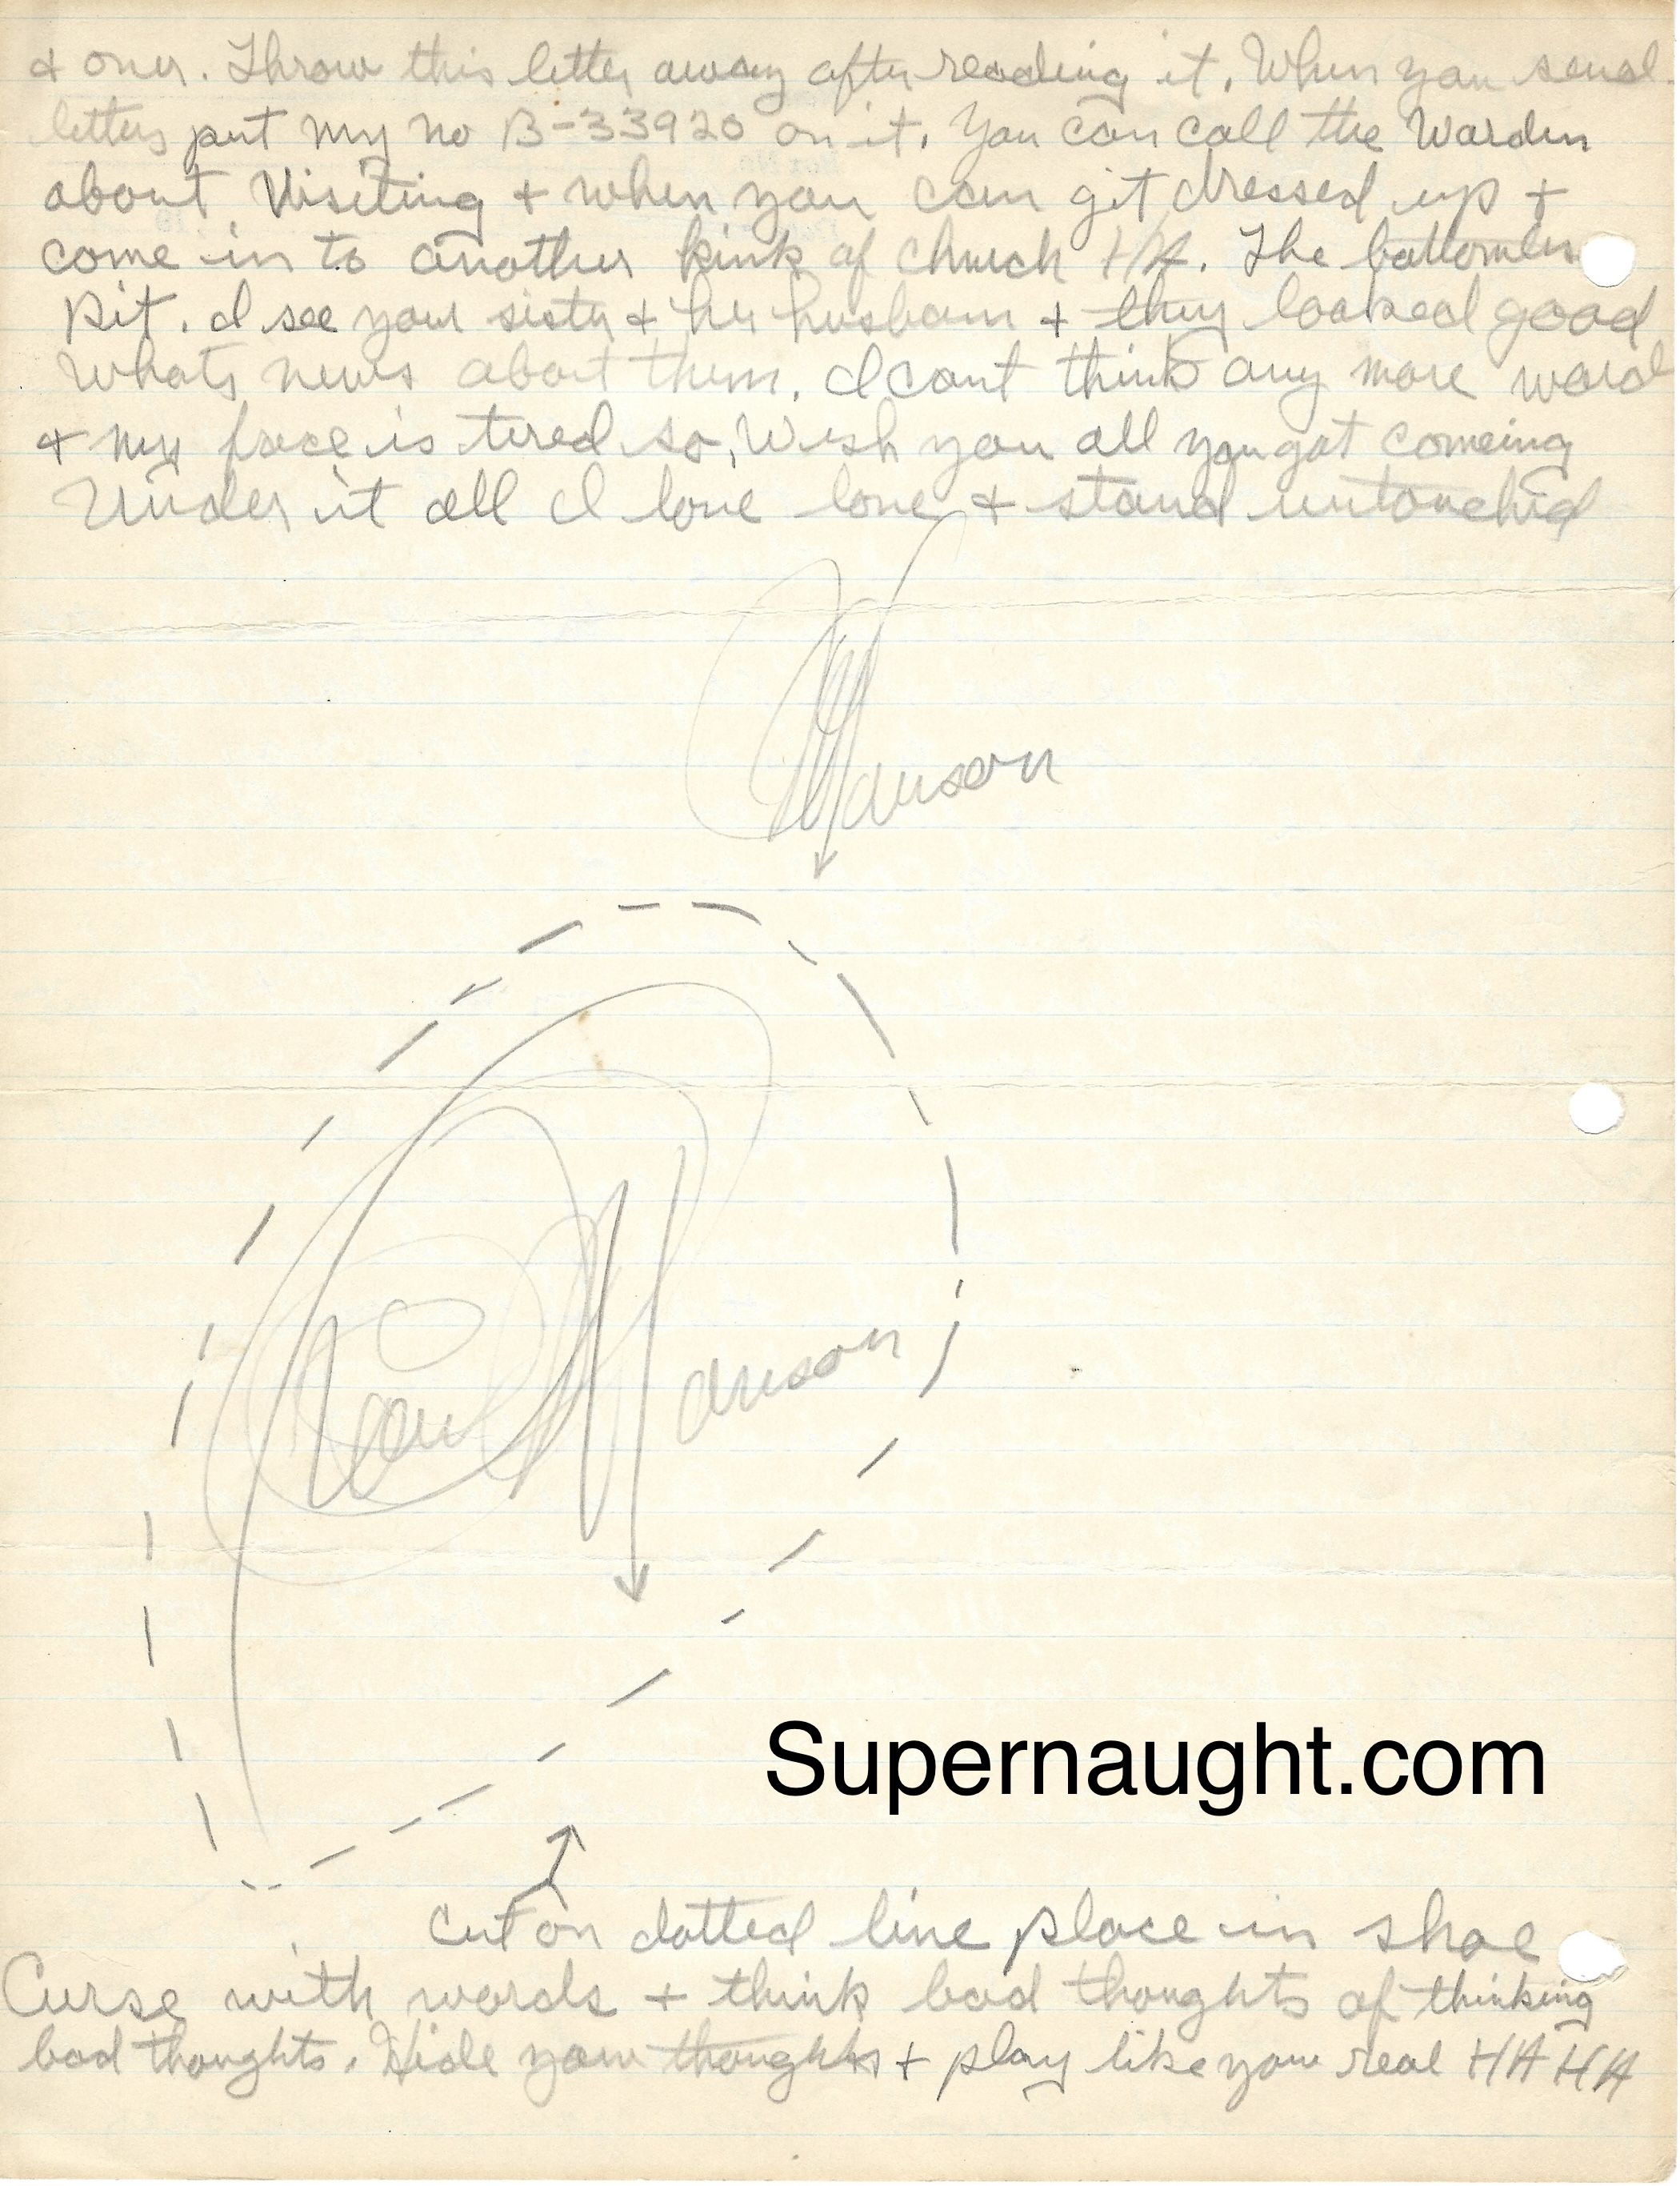 & over. Throw this letter away after reading it. When you send
letters put my no B-33920 on it. You can call the Warden
about Visiting & when you can git dressed up &
come in to another kink of chruch HA. The bottomless
pit. I see your sister & her husbam & they looked good
Whats news about them. I cant think any more word
& my face is tired so, Wish you all you got comeing
Under it all I love love & stand untouched
Manson
Manson
Supernaught.com
Cut on dotted line place in shoe
Curse with words & think bad thoughts of thinking
bad thoughts. Hide your thoughts & play like your real HA HA